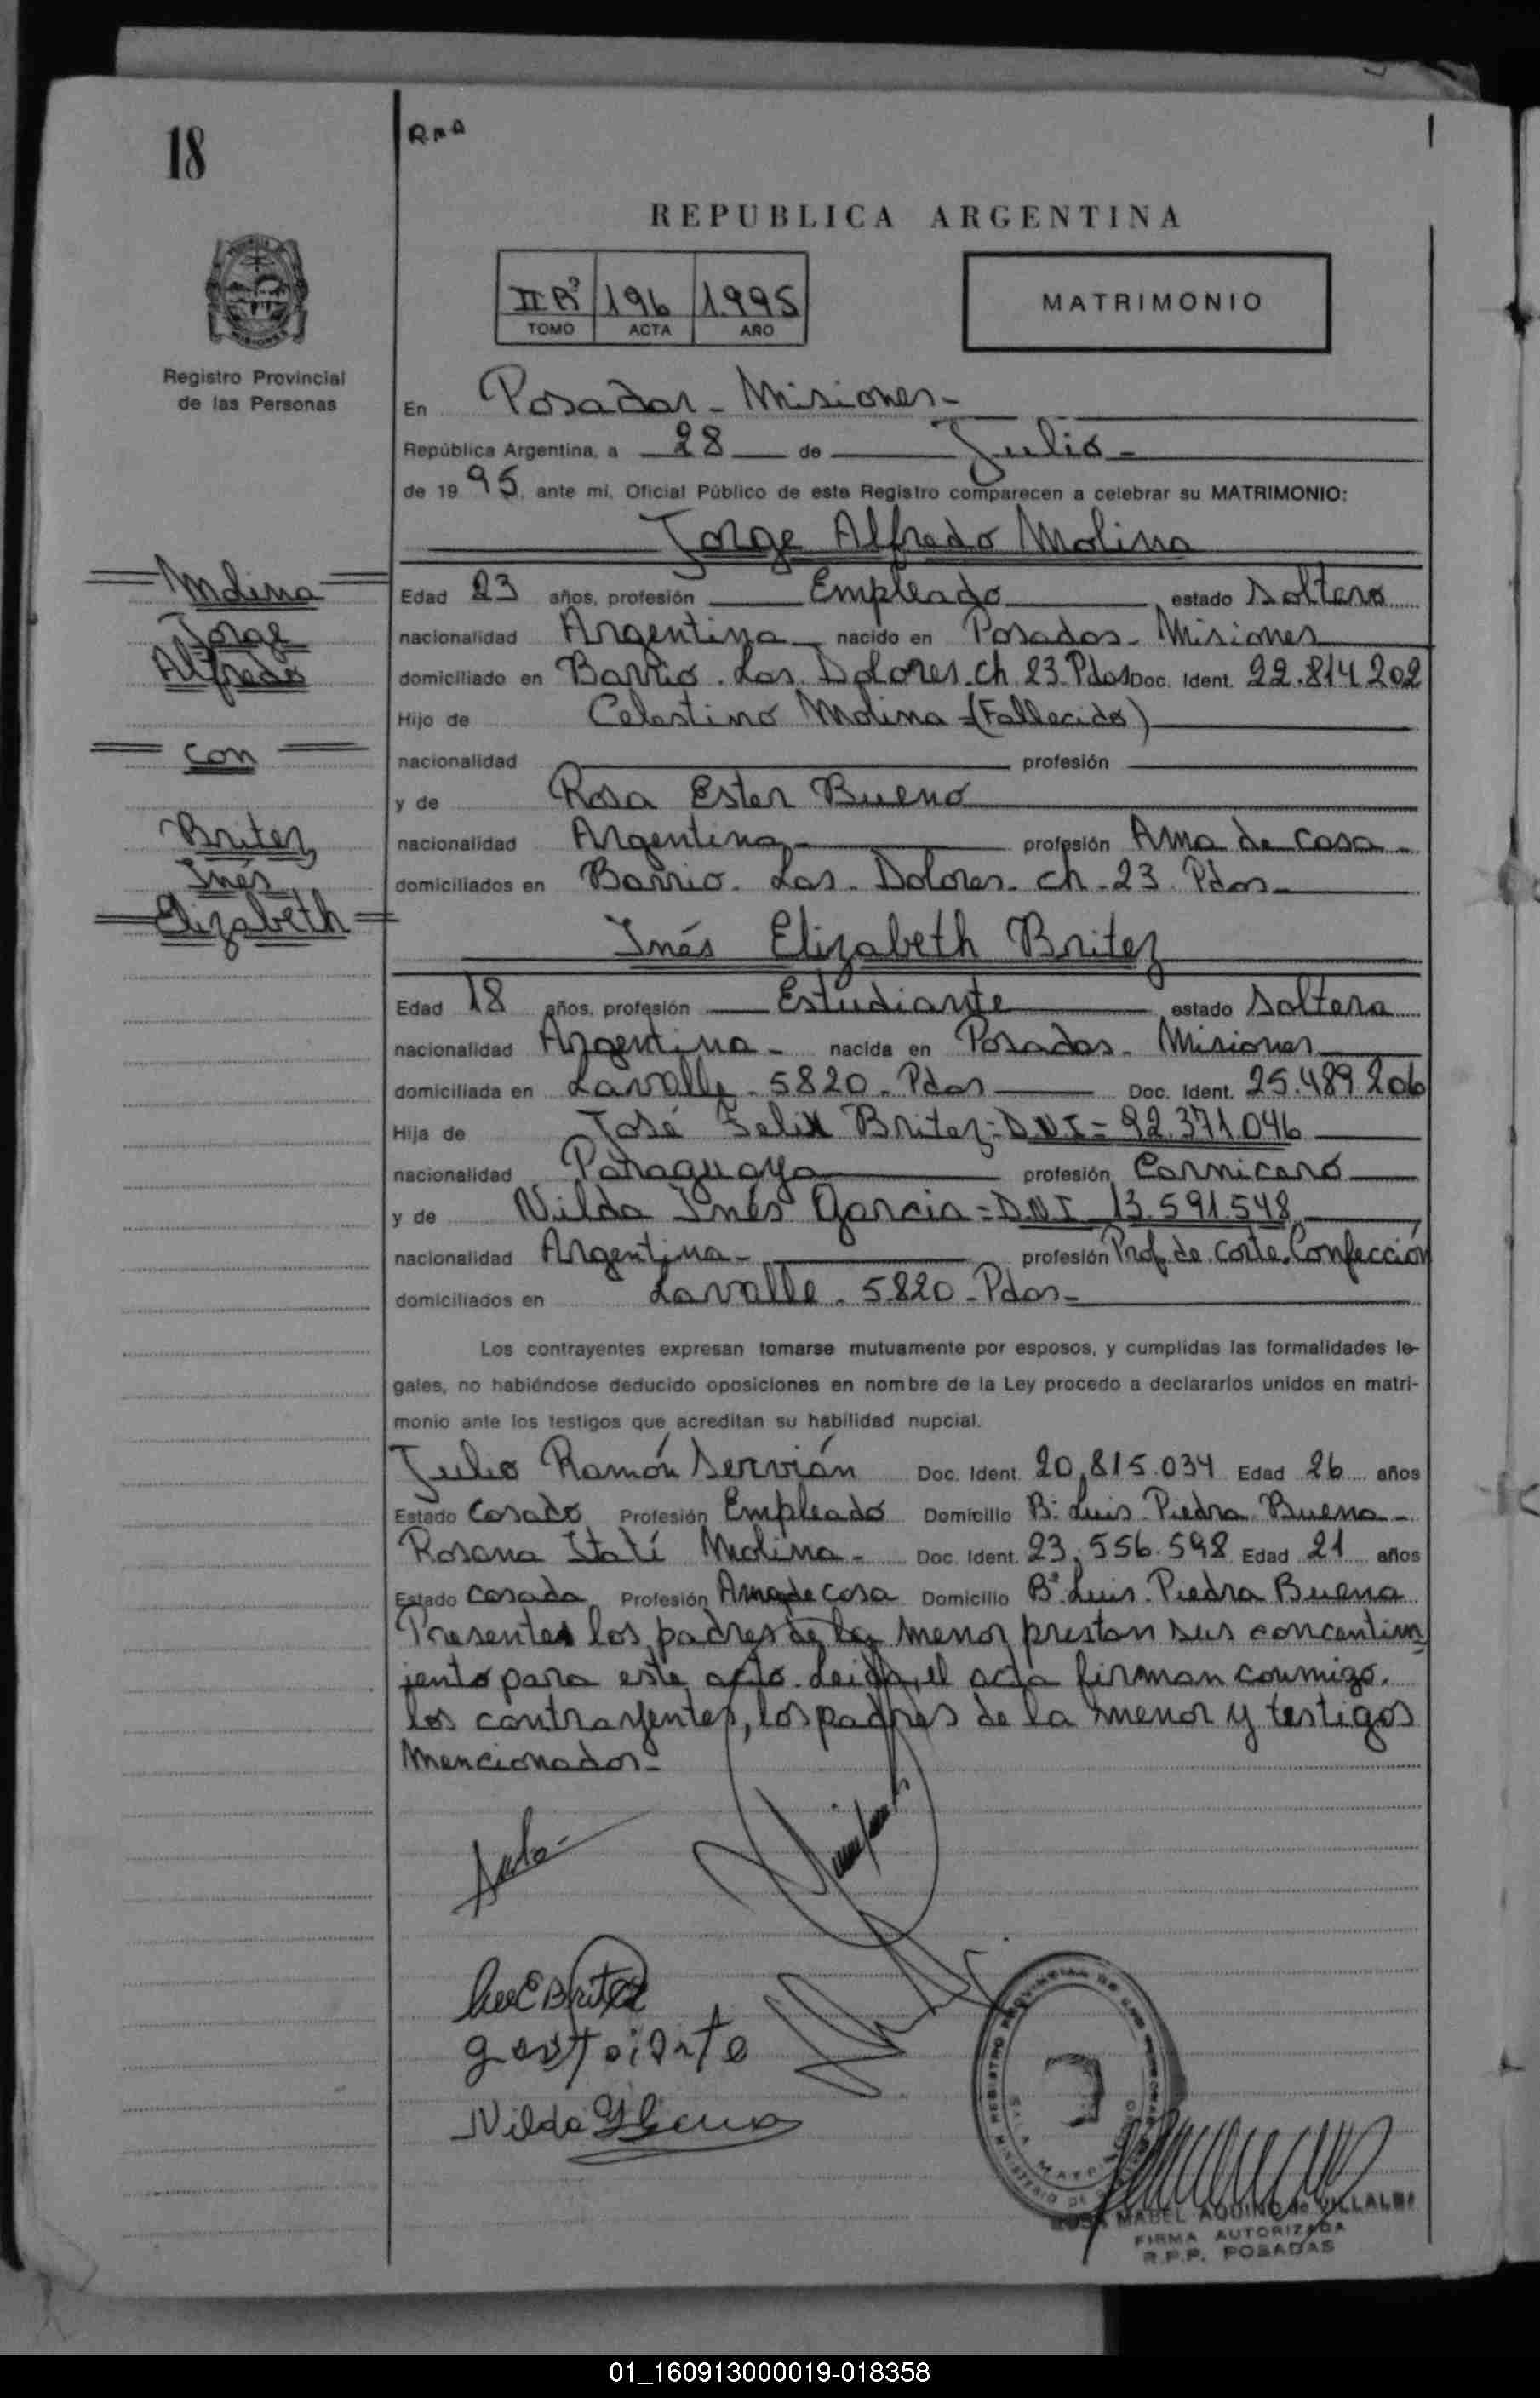 18
REPUBLICA ARGENTINA
1996
196
1.995
TOMO
ACTA
AÑO
MATRIMONIO
Registro Provincial
de las Personas
En Posadas - Misiones -
República Argentina, a 28 de Julio -
de 19 95, ante mi, Oficial Público de este Registro comparecen a celebrar su MATRIMONIO:
Jorge Alfredo Molina
Molina
Jorge
Alfredo
con
Britez
Inés
Elizabeth
Edad 23 años, profesión Empleado estado Soltero
nacionalidad Argentina nacido en Posadas - Misiones
domiciliado en Barrio. Los. Dolores. ch. 23. Pdas Doc. Ident. 22.814.202
Hijo de Celestino Molina = (Fallecido)
nacionalidad profesión
y de Rosa Ester Bueno
nacionalidad Argentina - profesión Ama de casa -
domiciliados en Barrio. Los. Dolores. ch. 23. Pdas -
Inés Elizabeth Britez
Edad 18 años, profesión Estudiante estado Soltera
nacionalidad Argentina - nacida en Posadas - Misiones
domiciliada en Lavalle - 5820 - Pdas Doc. Ident. 25.489.206
Hija de José Felix Britez = DNI = 92.371.046
nacionalidad Paraguaya profesión Carnicero
y de Nilda Inés Garcia = DNI 13.591.548
nacionalidad Argentina - profesión Prof. de Corte. Confección
domiciliados en Lavalle - 5820 - Pdas -
Los contrayentes expresan tomarse mutuamente por esposos, y cumplidas las formalidades le-
gales, no habiéndose deducido oposiciones en nombre de la Ley procedo a declararlos unidos en matri-
monio ante los testigos que acreditan su habilidad nupcial.
Julio Ramón Servián Doc. Ident. 20.815.034 Edad 26 años
Estado Casado Profesión Empleado Domicilio B: Luis Piedra Buena -
Rosana Itatí Molina - Doc. Ident. 23.556.598 Edad 21 años
Estado Casada Profesión Ama de casa Domicilio Bº Luis. Piedra Buena
Presentes los padres de la menor prestan sus concentim
iento para este acto. Leida, el acta firman conmigo.
los contrayentes, los padres de la menor y testigos
mencionados -
FIRMA AUTORIZADA
R.P.P. POSADAS
01_160913000019-018358